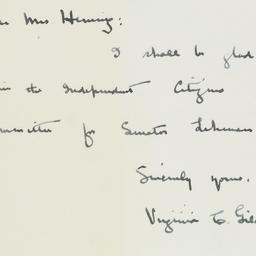 Mrs. Hering:
I shall be glad
the Independent Citizens
for Senator Lehman
Sincerely yours,
Virginia C.